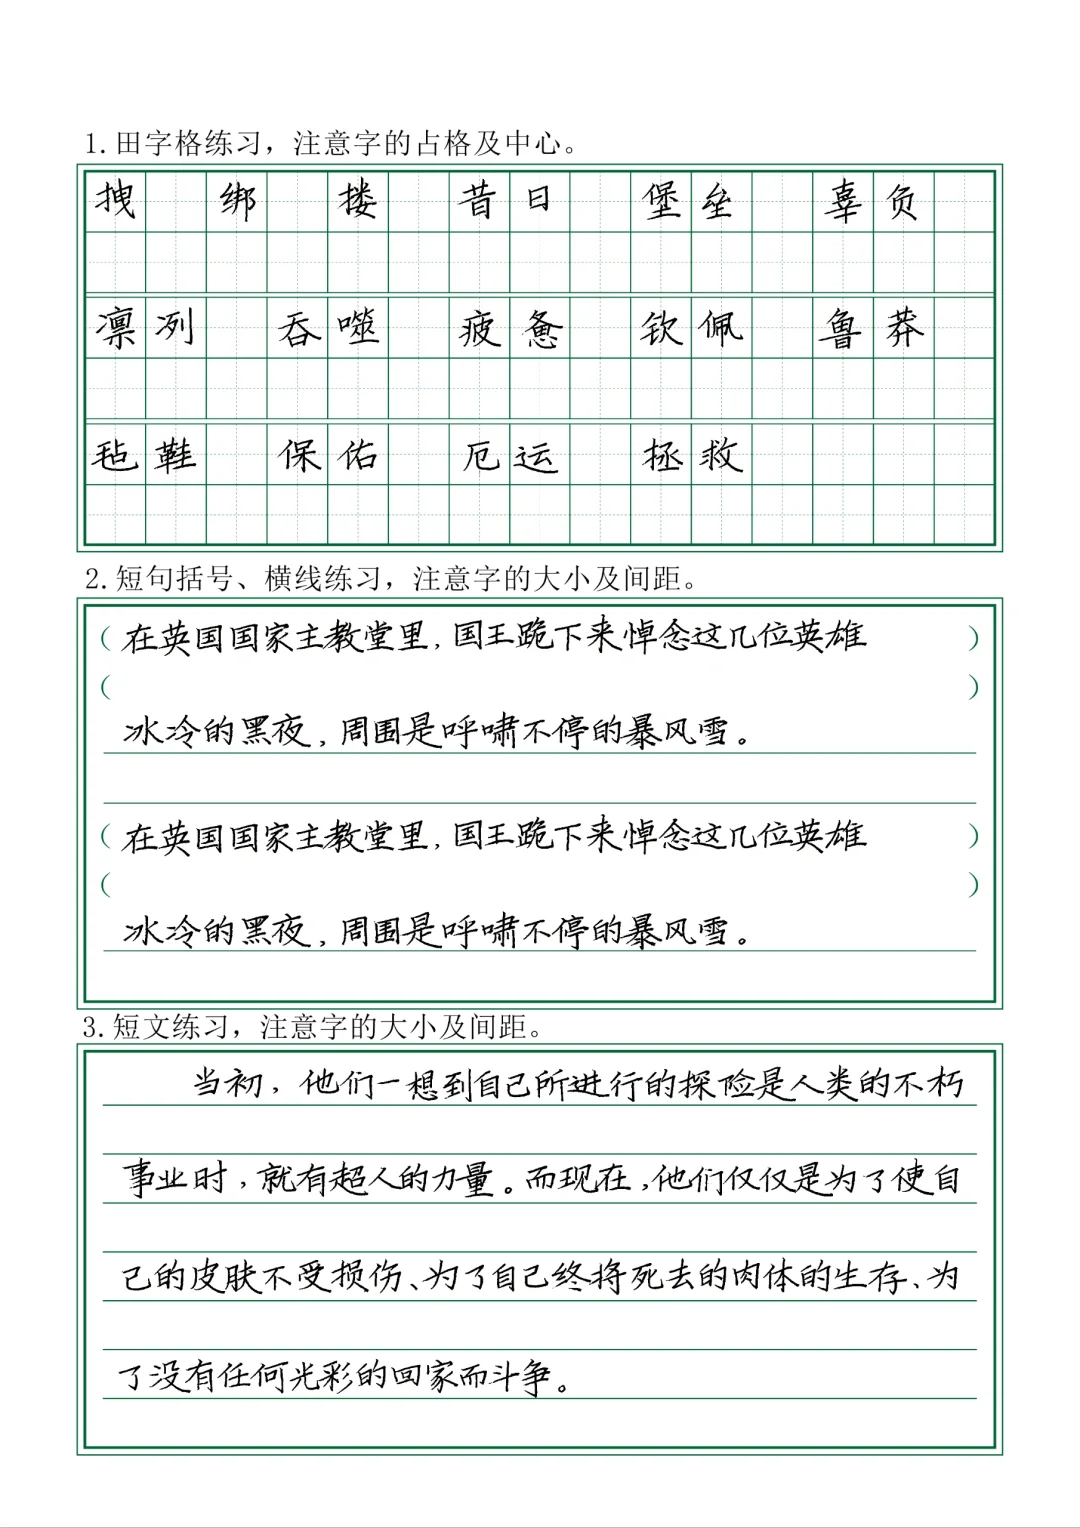 1.田字格练习，注意字的占格及中心。
拽 绑 搂 昔日 堡垒 辜负
凛冽 吞噬 疲惫 钦佩 鲁莽
毡鞋 保佑 厄运 拯救
2.短句括号、横线练习，注意字的大小及间距。
（在英国国家主教堂里，国王跪下来悼念这几位英雄）
（ ）
冰冷的黑夜，周围是呼啸不停的暴风雪。
（在英国国家主教堂里，国王跪下来悼念这几位英雄）
（ ）
冰冷的黑夜，周围是呼啸不停的暴风雪。
3.短文练习，注意字的大小及间距。
当初，他们一想到自己所进行的探险是人类的不朽
事业时，就有超人的力量。而现在，他们仅仅是为了使自
己的皮肤不受损伤、为了自己终将死去的肉体的生存、为
了没有任何光彩的回家而斗争。